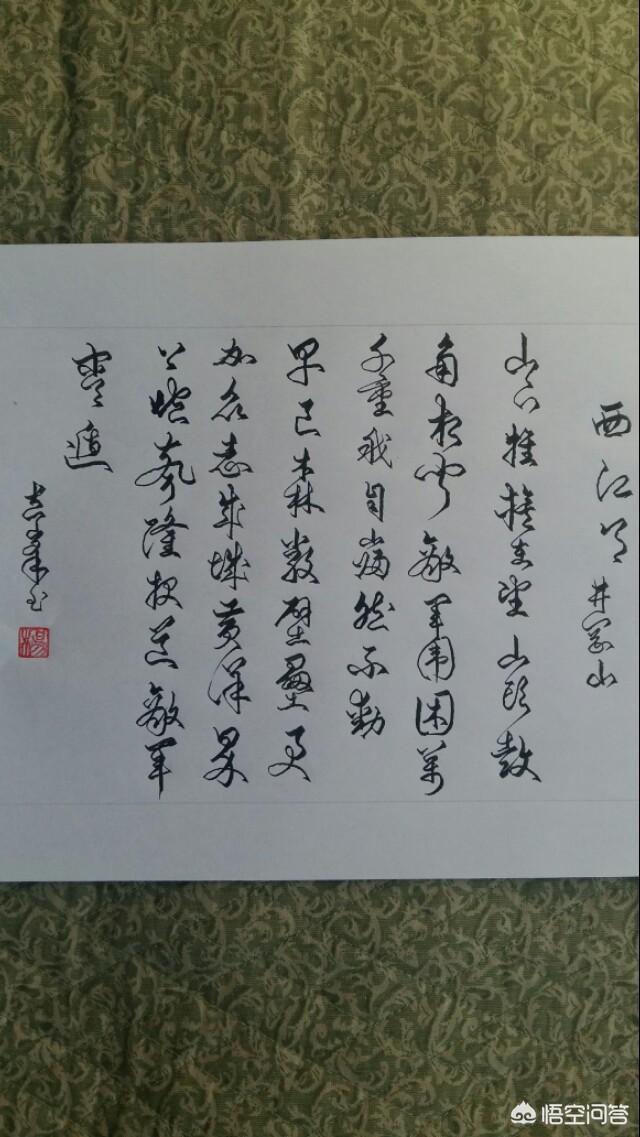 西江月 井冈山
山下旌旗在望山头鼓
角相闻敌军围困萬
千重我自岿然不動
早已森严壁壘更
加众志成城黄洋界
上炮声隆报道敌军
宵遁